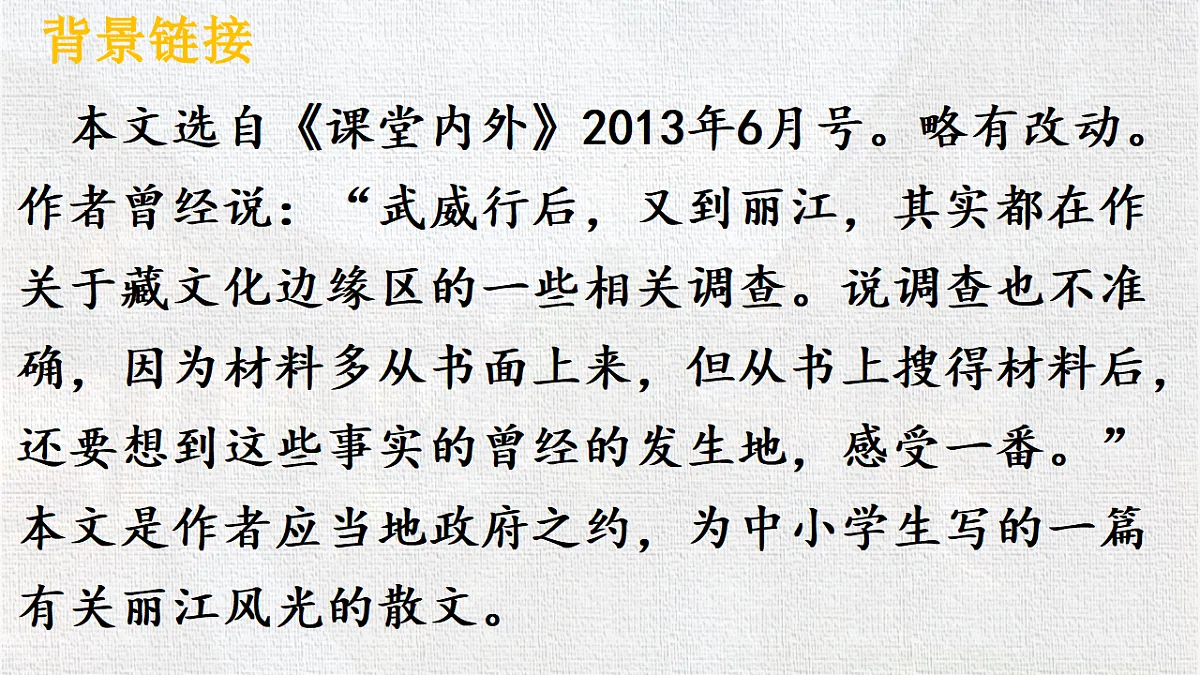 背景链接
本文选自《课堂内外》2013年6月号。略有改动。
作者曾经说：“武威行后，又到丽江，其实都在作
关于藏文化边缘区的一些相关调查。说调查也不准
确，因为材料多从书面上来，但从书上搜得材料后，
还要想到这些事实的曾经的发生地，感受一番。”
本文是作者应当地政府之约，为中小学生写的一篇
有关丽江风光的散文。